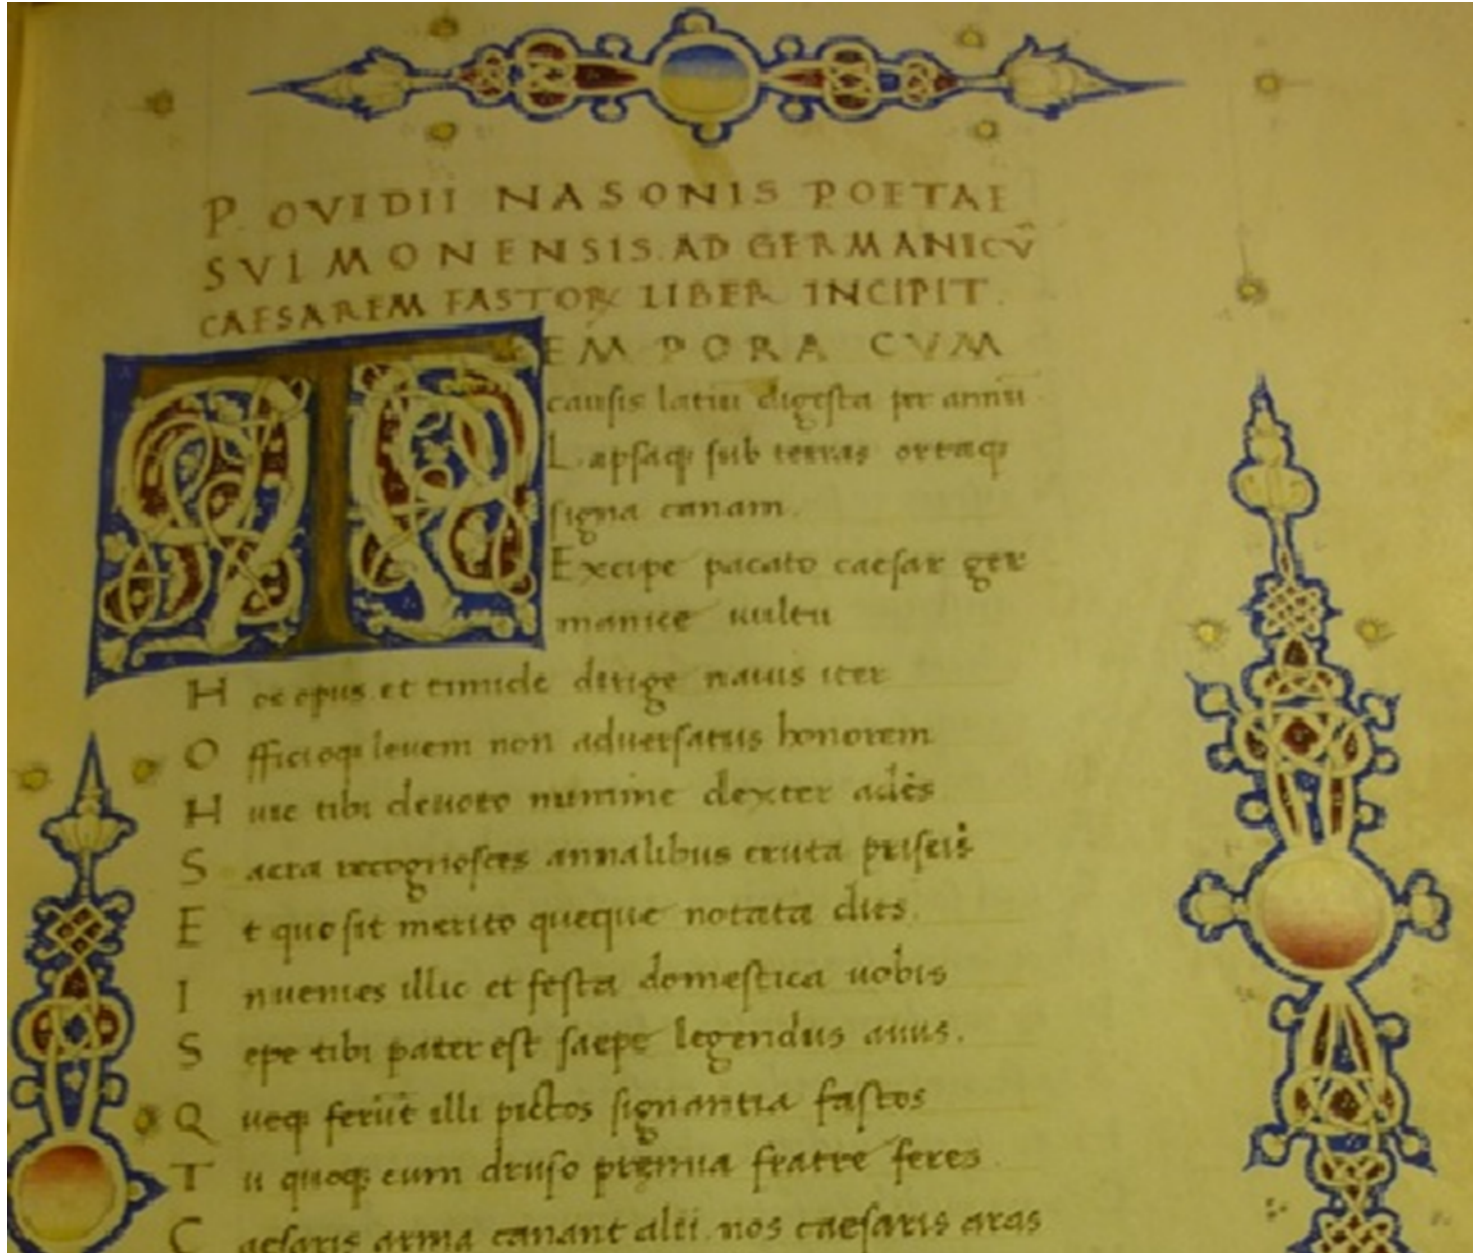 P. OVIDII NASONIS POETAE
SVLMONENSIS. AD GERMANICV̄
CAESAREM FASTOꝜ LIBER INCIPIT.
TEMPORA CVM
causis latiū digesta per annū
Lapsaqꝫ sub terras ortaqꝫ
signa canam.
Excipe pacato caesar ger
manice uultu
Hoc opus et timide dirige nauis iter
Officioqꝫ leuem non aduersatus honorem
Huic tibi deuoto numine dexter ades
Sacra recognosces annalibus eruta priscis
Et quo sit merito queque notata dies.
Inuenies illic et festa domestica uobis
Sepe tibi pater est saepe legendus auus.
Queqꝫ ferūt illi pictos signantia fastos
Tu quoqꝫ cum druso premia fratre feres
Caesaris arma canant alii. nos caesaris aras